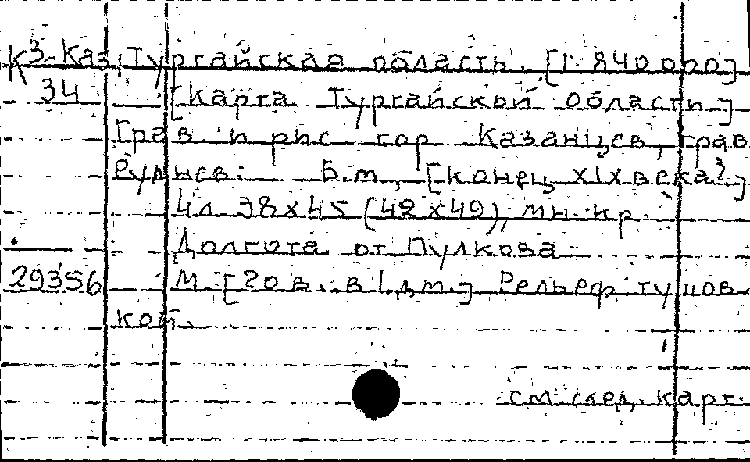 К3-Каз Тургайская область. [1:840000]
34 [Карта Тургайской области]
Грав и рис гор Казанцев, грав
Руднев. Б.м., [конец XIX века?]
4л 38x45 (42x49), мн. кр.
Долгота от Пулкова
29356 М. [20 в. в 1 дм.] Рельеф тушов
кой.
см след. карт.